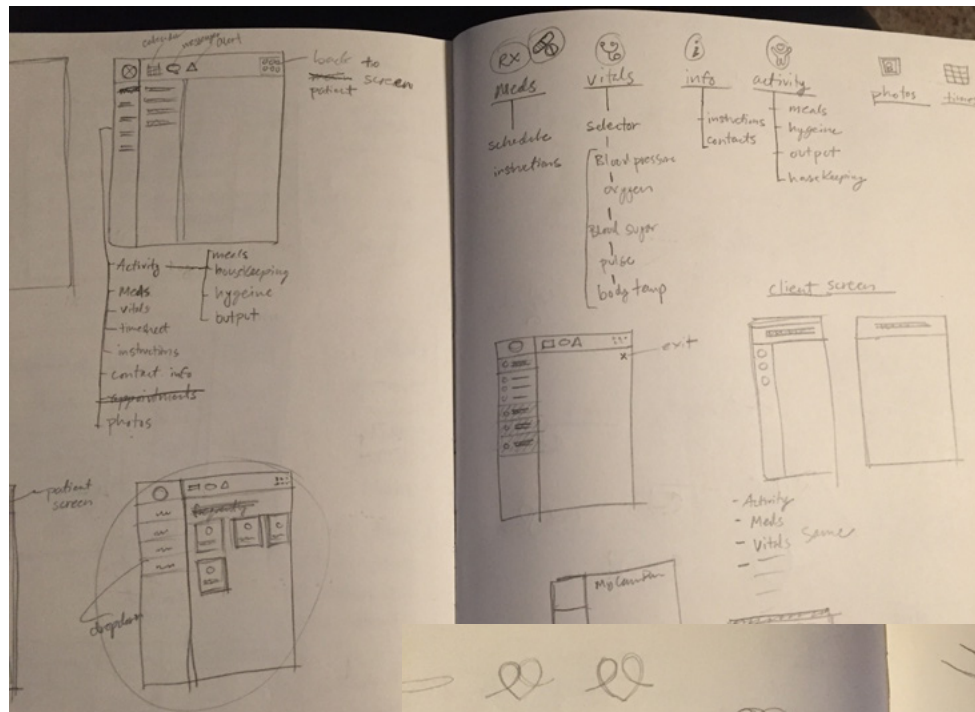 calendar
messages
alert
back to
screen
patient
Activity
meals
housekeeping
hygeine
output
Meds
vitals
timesheet
instructions
contact info
appointments
photos
patient
screen
frequently
dropdown
RX
Meds
schedule
instructions
vitals
selector
Blood pressure
oxygen
Blood sugar
pulse
body temp
info
instructions
contacts
activity
meals
hygeine
output
housekeeping
photos
exit
client screen
- Activity
- Meds
- Vitals same